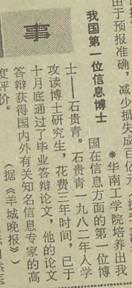 由于预报准确，减少损失成百
我国第一位信息博士
华南工学院培养出我
国在信息方面的第一位博
士——石贵青。石贵青一九八二年入学
攻读博士研究生，花费三年时间，已于
十月底通过了毕业答辩论文，他的论文
答辩获得国内外有关知名信息专家的高
度评价。
（据《羊城晚报》）
事